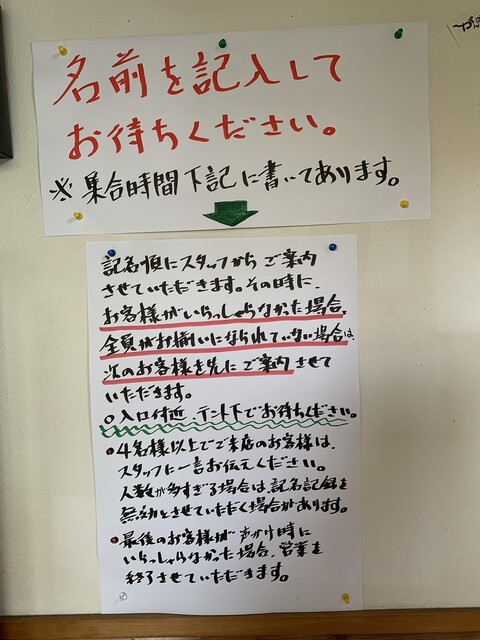 名前を記入して
お待ちください。
※集合時間下記に書いてあります。
記名順にスタッフからご案内
させていただきます。その時に、
お客様がいらっしゃらなかった場合、
全員がお揃いになられていない場合は、
次のお客様を先にご案内させて
いただきます。
○入口付近、テント下でお待ちください。
●4名様以上でご来店のお客様は、
スタッフに一言お伝えください。
人数が多すぎる場合は、記名記録を
無効とさせていただく場合があります。
●最後のお客様が声かけ時に
いらっしゃらなかった場合、営業を
終了させていただきます。